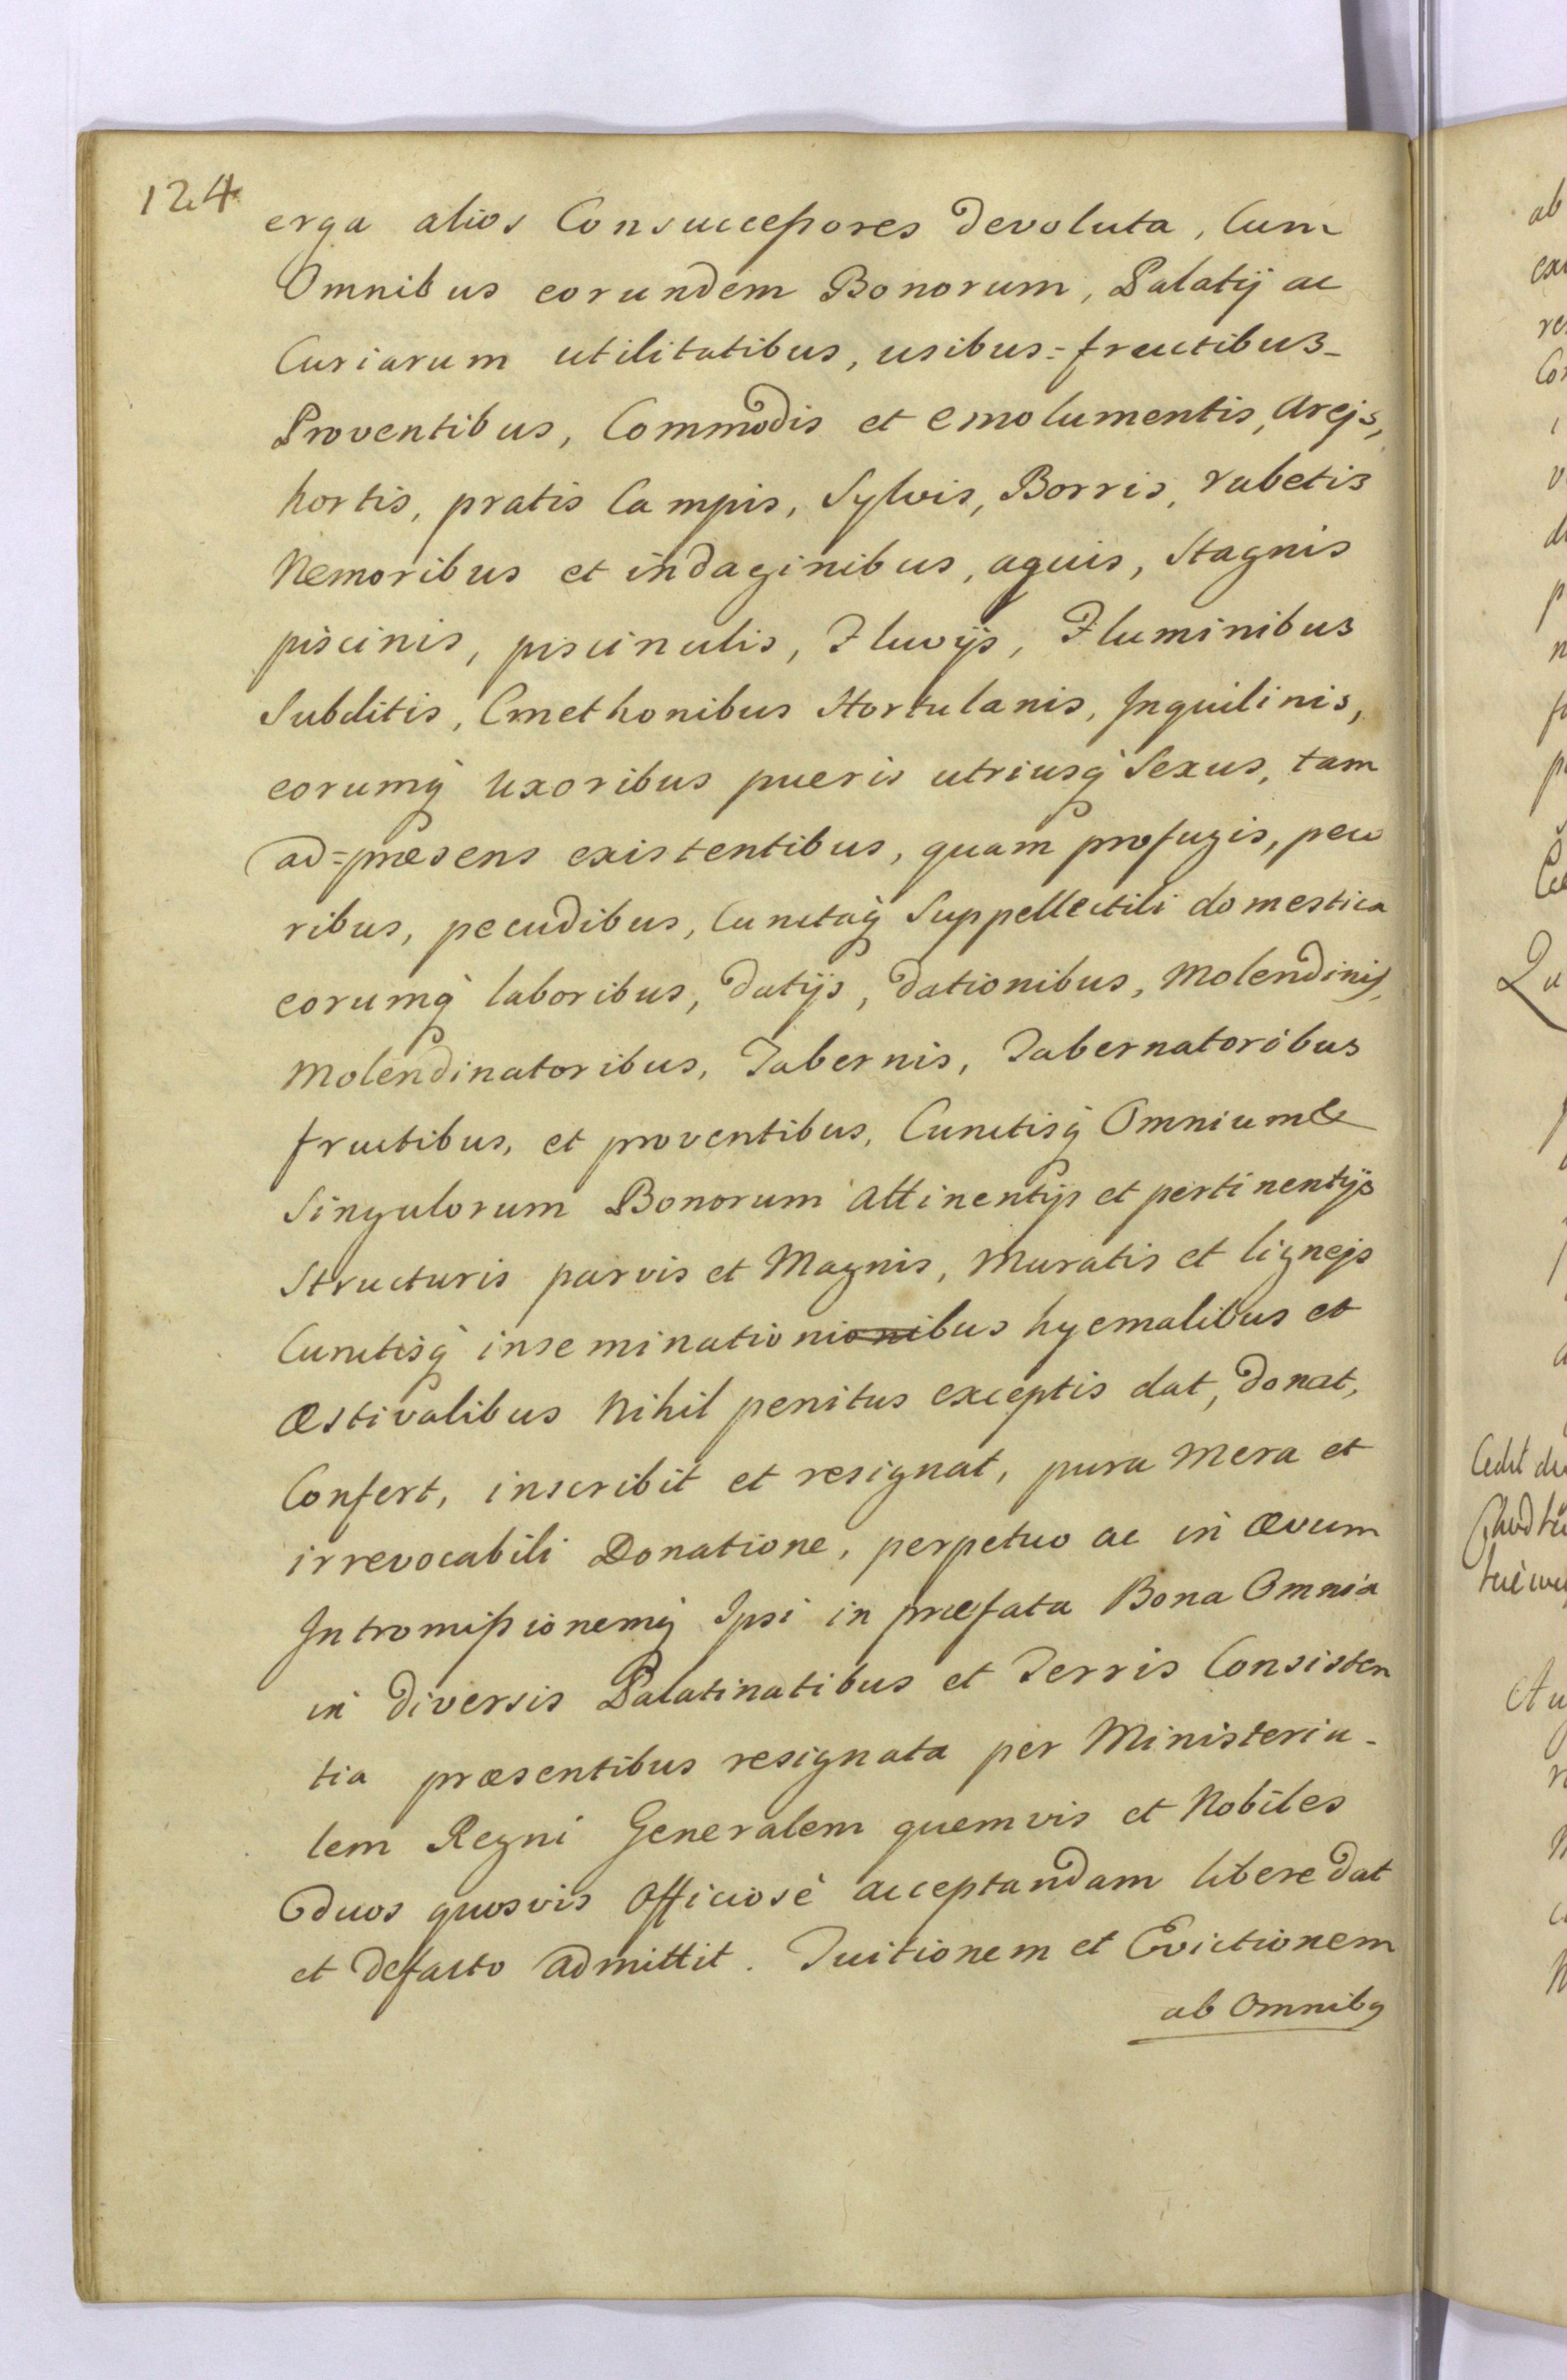 124
erga alios Consuccessores devoluta, Cum
Omnibus eorundem Bonorum, Palatij ac
Curiarum utilitatibus, usibus=fructibus_
Proventibus, Commodis et emolumentis, Arejs,
hortis, pratis Campis, Sylvis, Borris, rubetis
Nemoribus et indaginibus, aquis, Stagnis
piscinis, piscinulis, Fluvijs, Fluminibus
Subditis, Cmethonibus Hortulanis, Inquilinis,
eorumq́ Uxoribus pueris utriusq́ Sexus, tam
ad=præsens existentibus, quam profugis, peco
ribus, pecudibus, Cunctaq́ Suppellectili domestica
eorumq́ laboribus, datijs, dationibus, Molendinis,
Molendinatoribus, Tabernis, Tabernatoribus
fructibus, et proventibus, Cunctisq́ Omnium &
Singulorum Bonorum Attinentijs et pertinentijs
Structuris parvis et Magnis, Muratis et lignejs
Cunctisq́ inseminationionibus hyemalibus et
Æstivalibus Nihil penitus exceptis dat, donat,
Confert, inscribit et resignat, pura Mera et
irrevocabili Donatione, perpetuo ac in Ævum
Intromissionemq́ Ipsi in præfata Bona Omnia
in diversis Palatinatibus et Terris Consisten
tia præsentibus resignata per Ministeria_
lem Regni Generalem quemvis et Nobiles
duos quosvis Officiosè acceptandam libere dat
et defacto admittit. Tuitionem et Evictionem
ab Omnibq
ab
Co
Qu